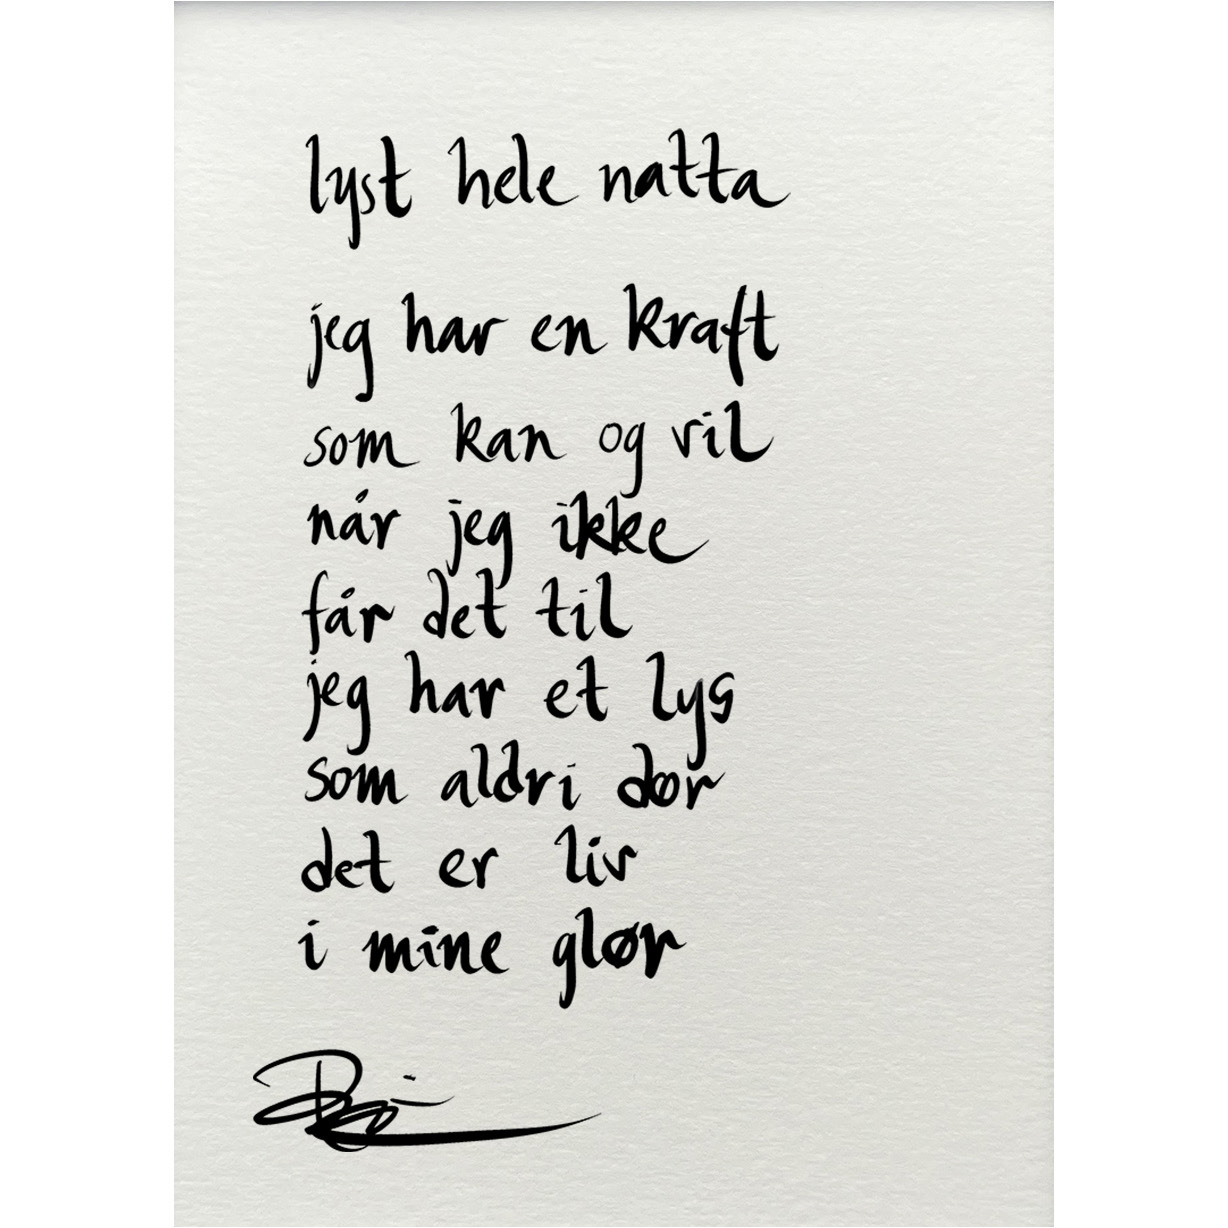 lyst hele natta
jeg har en kraft
som kan og vil
når jeg ikke
får det til
jeg har et lys
som aldri dør
det er liv
i mine glør